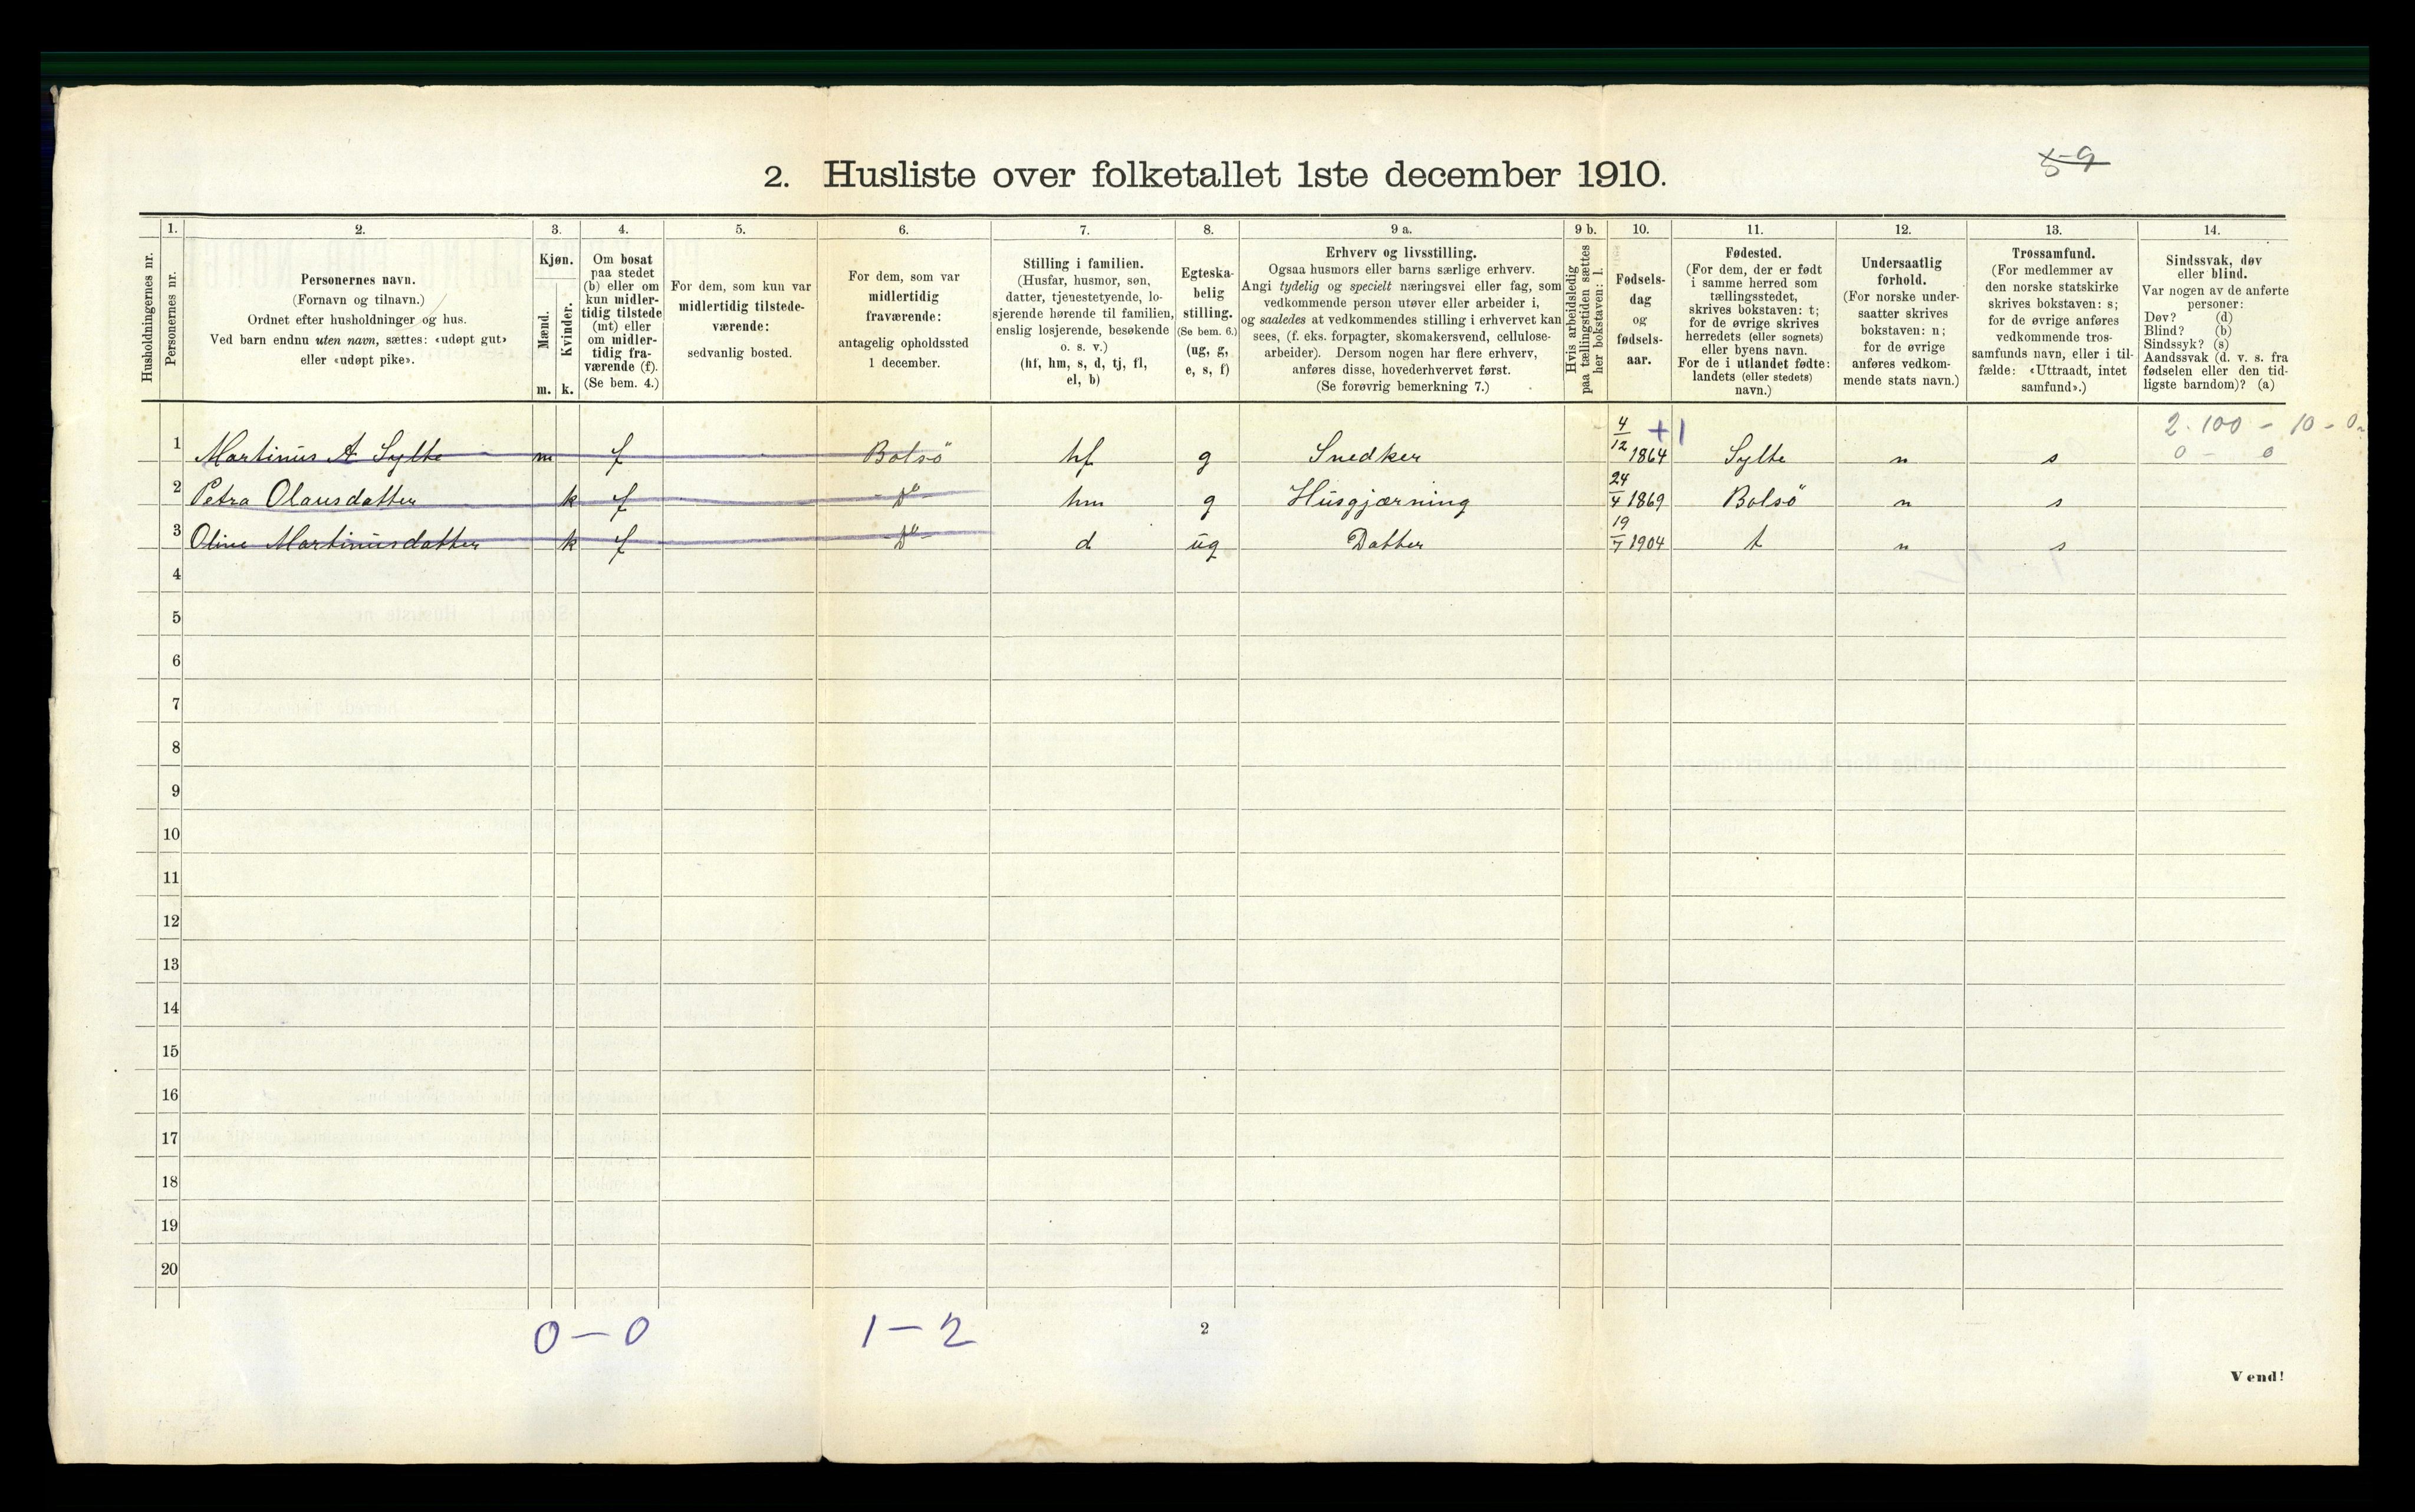 5-9
2. Husliste over folketallet 1ste december 1910.
Husholdningernes nr.
1.
Personernes nr.
2.
Personernes navn.
(Fornavn og tilnavn.)
Ordnet efter husholdninger og hus.
Ved barn endnu uten navn, sættes: «udøpt gut»
eller «udøpt pike».
3.
Kjøn.
Mænd.
Kvinder.
m. k.
4.
Om bosat
paa stedet
(b) eller om
kun midler-
tidig tilstede
(mt) eller
om midler-
tidig fra-
værende (f).
(Se bem. 4.)
5.
For dem, som kun var
midlertidig tilstede-
værende:
sedvanlig bosted.
6.
For dem, som var
midlertidig
fraværende:
antagelig opholdssted
1 december.
7.
Stilling i familien.
(Husfar, husmor, søn,
datter, tjenestetyende, lo-
sjerende hørende til familien,
enslig losjerende, besøkende
o. s. v.)
(hf, hm, s, d, tj, fl,
el, b)
8.
Egteska-
belig
stilling.
(Se bem. 6.)
(ug, g,
e, s, f)
9 a.
Erhverv og livsstilling.
Ogsaa husmors eller barns særlige erhverv.
Angi tydelig og specielt næringsvei eller fag, som
vedkommende person utøver eller arbeider i,
og saaledes at vedkommendes stilling i erhvervet kan
sees, (f. eks. forpagter, skomakersvend, cellulose-
arbeider). Dersom nogen har flere erhverv,
anføres disse, hovederhvervet først.
(Se forøvrig bemerkning 7.)
9 b.
Hvis arbeidsledig
paa tællingstiden sættes
her bokstaven: l.
10.
Fødsels-
dag
og
fødsels-
aar.
11.
Fødested.
(For dem, der er født
i samme herred som
tællingsstedet,
skrives bokstaven: t;
for de øvrige skrives
herredets (eller sognets)
eller byens navn.
For de i utlandet fødte:
landets (eller stedets)
navn.)
12.
Undersaatlig
forhold.
(For norske under-
saatter skrives
bokstaven: n;
for de øvrige
anføres vedkom-
mende stats navn.)
13.
Trossamfund.
(For medlemmer av
den norske statskirke
skrives bokstaven: s;
for de øvrige anføres
vedkommende tros-
samfunds navn, eller i til-
fælde: «Uttraadt, intet
samfund».)
14.
Sindssvak, døv
eller blind.
Var nogen av de anførte
personer:
Døv? (d)
Blind? (b)
Sindssyk? (s)
Aandssvak (d. v. s. fra
fødselen eller den tid-
ligste barndom)? (a)
2.100 - 10 - 0
0 - 0
1 Martinus A Sylte m f Bolsö hf g Snedker 4/12 1864 +1 Sylte n s
2 Petra Olausdatter k f - D° - hm g Husgjærning 24/4 1869 Bolsö n s
3 Oline Martinusdatter k f - D° - d ug Datter 19/7 1904 t n s
4
5
6
7
8
9
10
11
12
13
14
15
16
17
18
19
20
0-0 1-2
2
Vend!